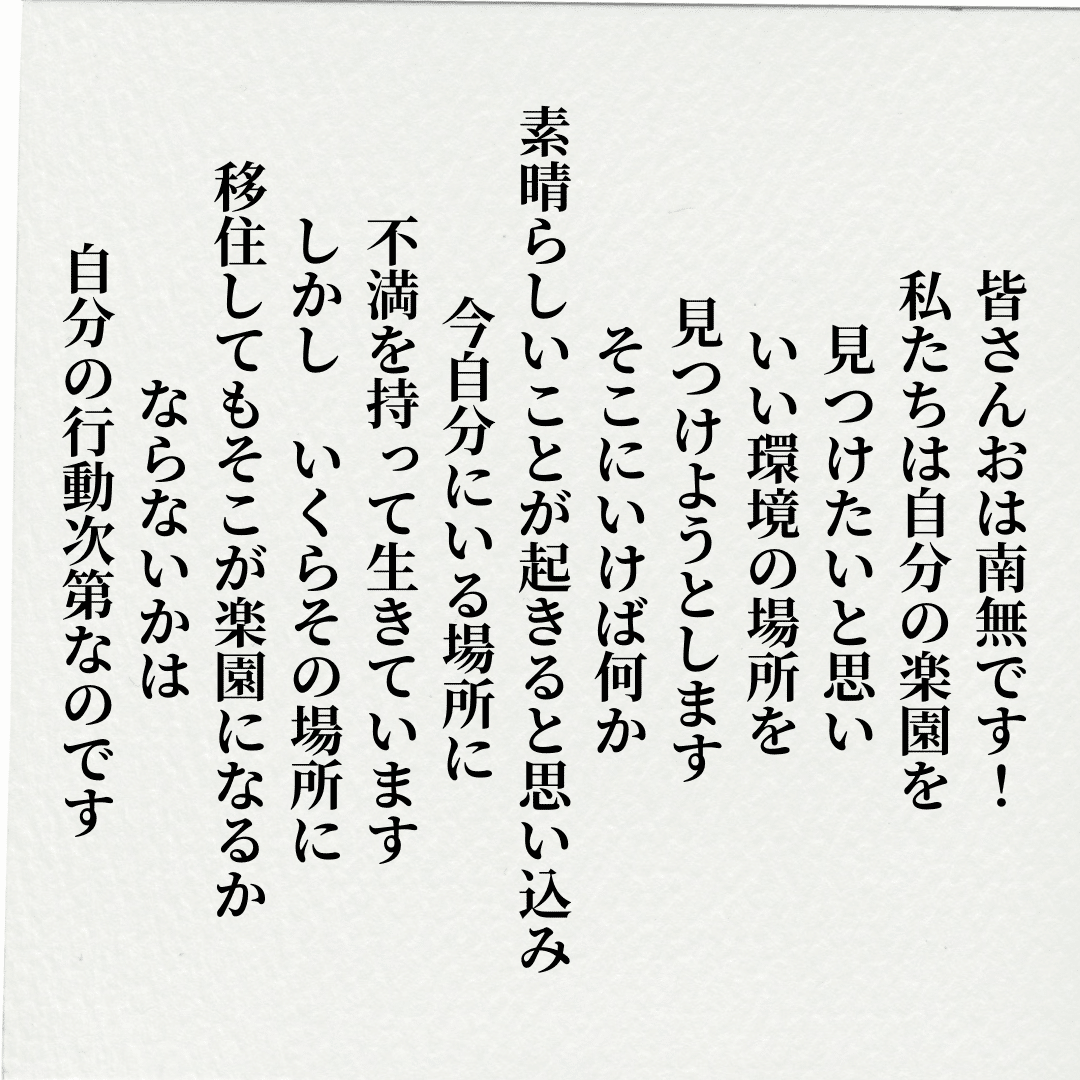 皆さんおは南無です！
私たちは自分の楽園を
見つけたいと思い
いい環境の場所を
見つけようとします
そこにいけば何か
素晴らしいことが起きると思い込み
今自分にいる場所に
不満を持って生きています
しかし　いくらその場所に
移住してもそこが楽園になるか
ならないかは
自分の行動次第なのです